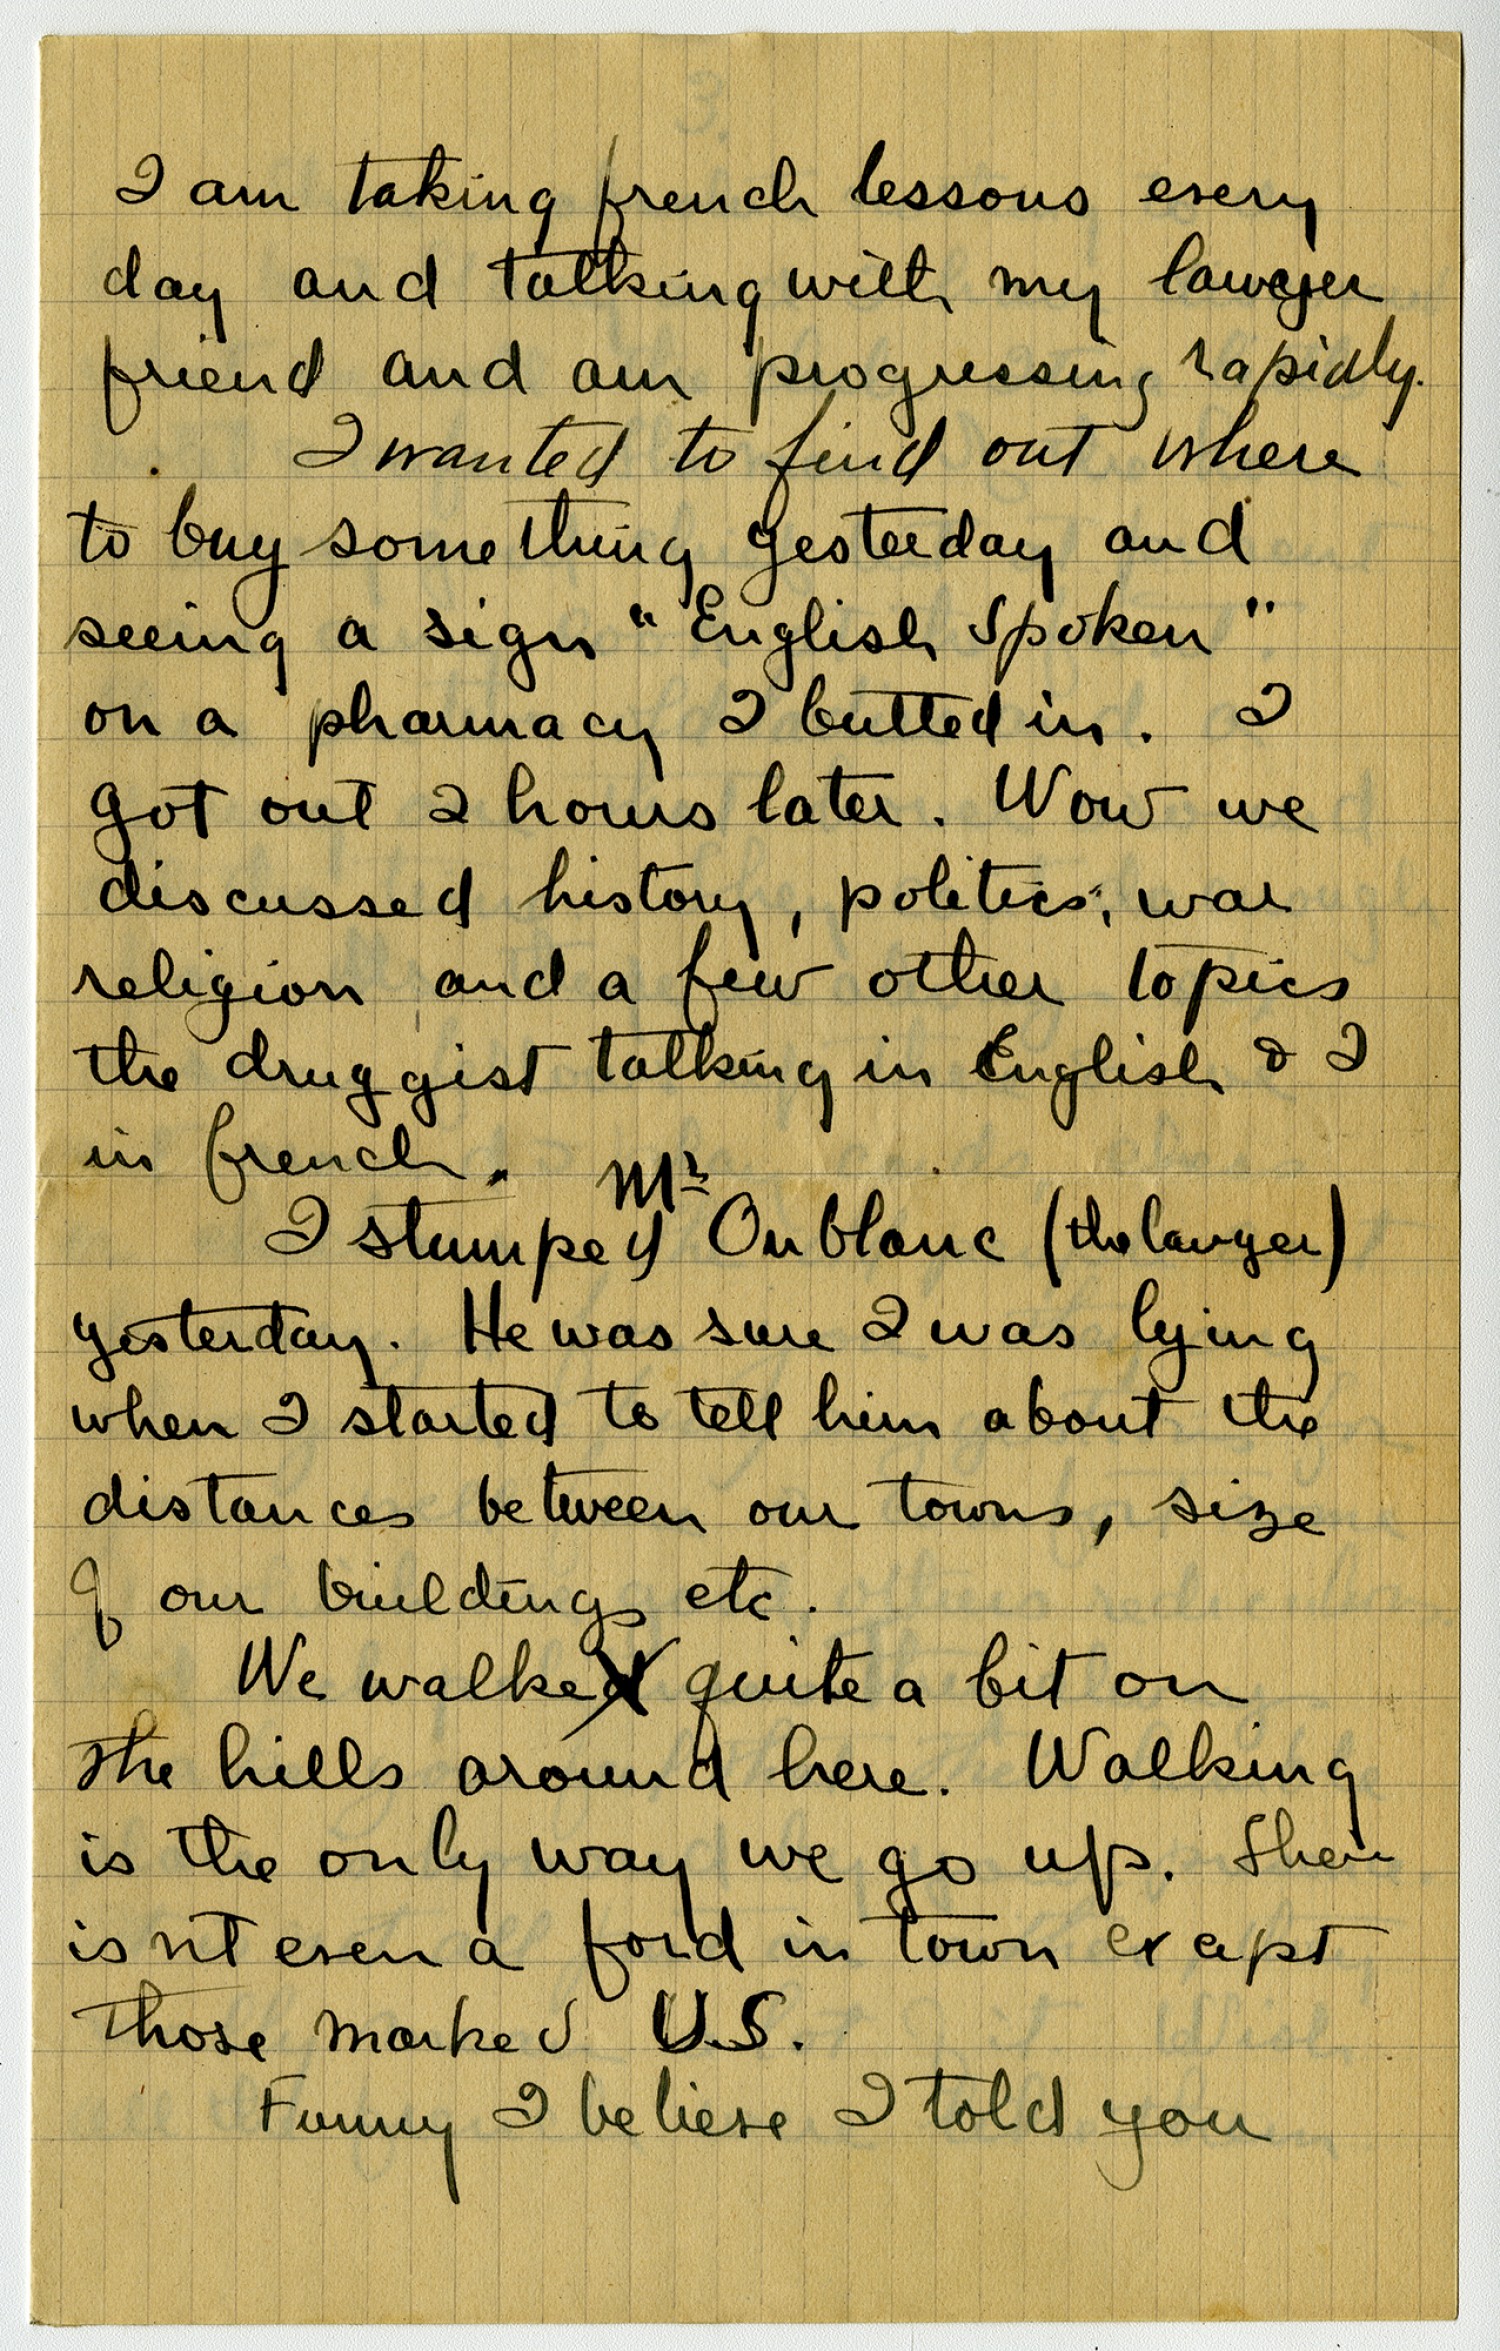 I am taking french lessons every
day and talking with my lawyer
friend and am progressing rapidly.
I wanted to find out where
to buy something yesterday and
seeing a sign "English Spoken"
on a pharmacy I butted in. I
got out 2 hours later. Wow we
discussed history, politics, war
religion and a few other topics
the druggist talking in English & I
in french.
I stumped Mr Oublanc (the lawyer)
yesterday. He was sure I was lying
when I started to tell him about the
distances between our towns, size
of our buildings etc.
We walk quite a bit on
the hills around here. Walking
is the only way we go up. There
isn't even a ford in town except
those marked U.S.
Funny I believe I told you